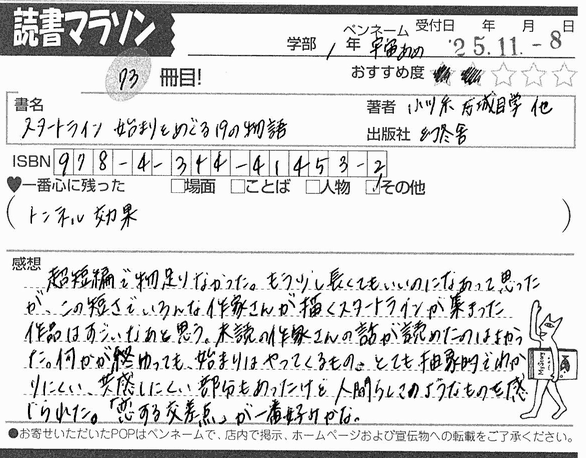 読書マラソン
学部 1年 ペンネーム 宇宙あめ 受付日 年 月 日
'25.11.-8
73 冊目!
おすすめ度 ★★☆☆☆
書名
スタートライン 始まりをめぐる19の物語
著者 小川糸 万城目学 他
出版社 幻冬舎
ISBN 978-4-344-41453-2
♥一番心に残った □場面 □ことば □人物 ☑その他
(トンネル効果)
感想
超短編で物足りなかった。もう少し長くてもいいのになあって思った
が、この短さでいろんな作家さんが描くスタートラインが集まった
作品はすごいなあと思う。未読の作家さんの話が読めたのはよかっ
た。何かが終わっても、始まりはやってくるもの。とても抽象的でわか
りにくい、共感しにくい部分もあったけど人間らしさのようなものを感
じられた。「恋する交差点」が一番好みかな。
●お寄せいただいたPOPはペンネームで、店内で掲示、ホームページおよび宣伝物への転載をご了承ください。